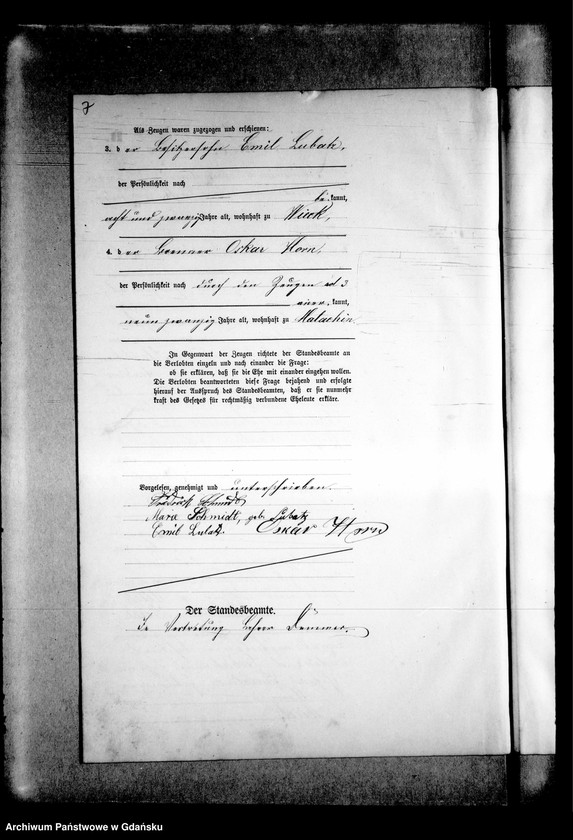 Als Zeugen waren zugezogen und erschienen:
3. der Besitzersohn Emil Lubatz,
der Persönlichkeit nach
be kannt,
acht und zwanzig Jahre alt, wohnhaft zu Wieck,
4. der Brenner Oskar Horn,
der Persönlichkeit nach durch den Zeugen ad 3
kannt,
neun zwanzig Jahre alt, wohnhaft zu Malachin
In Gegenwart der Zeugen richtete der Standesbeamte an
die Verlobten einzeln und nach einander die Frage:
ob sie erklären, daß sie die Ehe mit einander eingehen wollen.
Die Verlobten beantworteten diese Frage bejahend und erfolgte
hierauf der Ausspruch des Standesbeamten, daß er sie nunmehr
kraft des Gesetzes für rechtmäßig verbundene Eheleute erkläre.
Vorgelesen, genehmigt und unterschrieben.
Friedrich Schmidt
Schmidt, geb. Lubatz
Emil Lubatz Oskar Horn
Der Standesbeamte.
In Vertretung
Archiwum Państwowe w Gdańsku